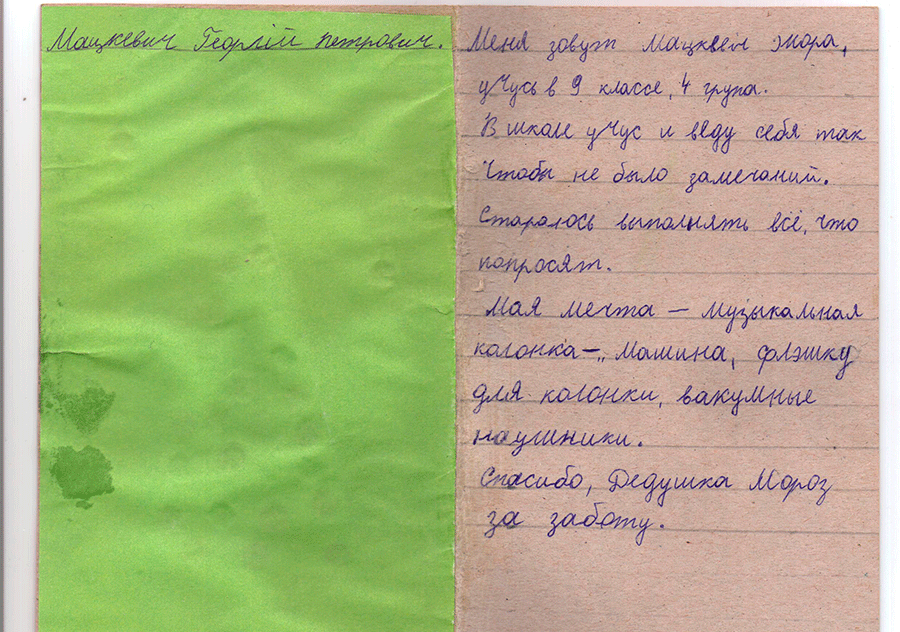 Мацкевич Георгий петрович.
Меня зовут Мацквеч жора,
учусь в 9 классе, 4 група.
В шкале учус и веду себя так
чтобы не было замечаний.
Стараюсь выполнять всё, что
попросят.
Мая мечта – музыкальная
калонка –„ машина, флэшку
для калонки, вакумные
наушники.
Спасибо, Дедушка Мороз
за заботу.